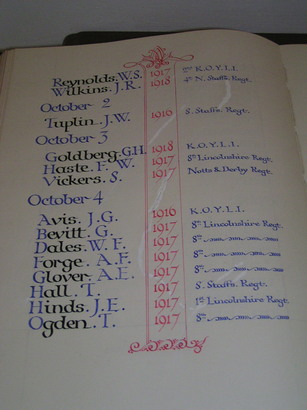 Reynolds. W.S. 1917 2nd K.O.Y.L.I.
Wilkins. J.R. 1918 4th N. Staffs. Regt.
October 2
Tuplin. J.W. 1916 S. Staffs. Regt.
October 3
Goldberg. G.H. 1918 K.O.Y.L.I.
Haste. F. W. 1917 8th Lincolnshire Regt.
Vickers. S. 1917 Notts & Derby Regt.
October 4
Avis. J.G. 1916 K.O.Y.L.I.
Bevitt. G. 1917 8th Lincolnshire Regt.
Dales. W. F. 1917 8th
Forge. A.F. 1917 8th
Glover. A.E. 1917 8th
Hall. T. 1917 S. Staffs. Regt.
Hinds. J.E. 1917 1st Lincolnshire Regt.
Ogden. T. 1917 8th